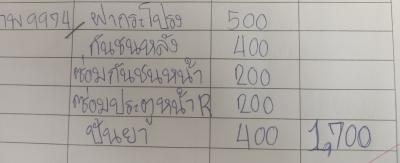 กพ 9974 ฝากระโปรง 500
กันชนหลัง 400
ซ่อมกันชนหน้า 200
ซ่อมประตูหน้า R 200
ปั่นยา 400 1,700